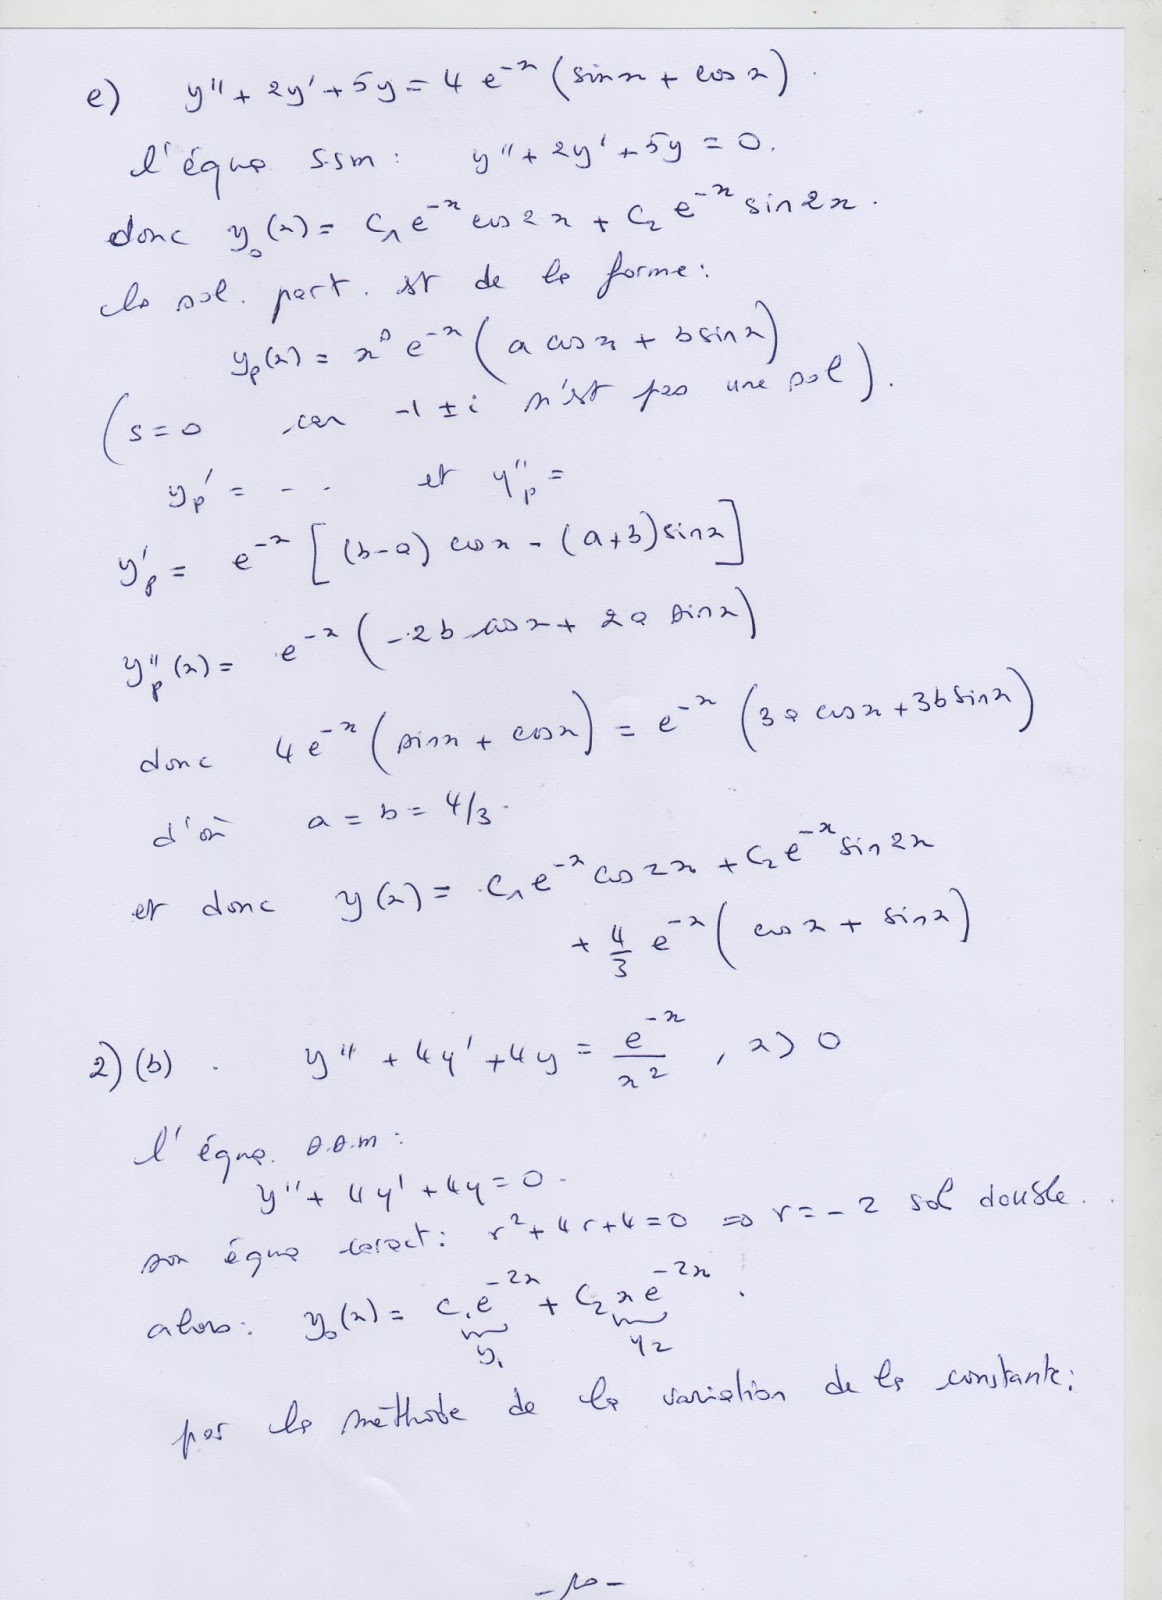 e) y'' + 2y' + 5y = 4 e^{-x} (sin x + cos x).
l'équa s.s.m : y'' + 2y' + 5y = 0.
donc y_0(x) = C_1 e^{-x} cos 2x + C_2 e^{-x} sin 2x.
la sol. part. est de la forme :
y_p(x) = x^s e^{-x} ( a cos x + b sin x )
( s = 0 car -1 ± i n'est pas une sol ).
y_p' = - . . et y''_p =
y'_p = e^{-x} [ (b-a) cos x - (a+b) sin x ]
y''_p(x) = e^{-x} ( -2b cos x + 2a sin x )
donc 4 e^{-x} ( sin x + cos x ) = e^{-x} ( 3a cos x + 3b sin x )
d'où a = b = 4/3.
et donc y(x) = C_1 e^{-x} cos 2x + C_2 e^{-x} sin 2x
+ \frac{4}{3} e^{-x} ( cos x + sin x )
2) (b) . y'' + 4y' + 4y = \frac{e^{-x}}{x^2} , x > 0
l'équa. s.s.m :
y'' + 4y' + 4y = 0.
son équa caract : r^2 + 4r + 4 = 0 ⇒ r = -2 sol double.
alors : y_0(x) = C_1 e^{-2x} + C_2 x e^{-2x}.
y_1 y_2
par la méthode de la variation de la constante :
- 10 -